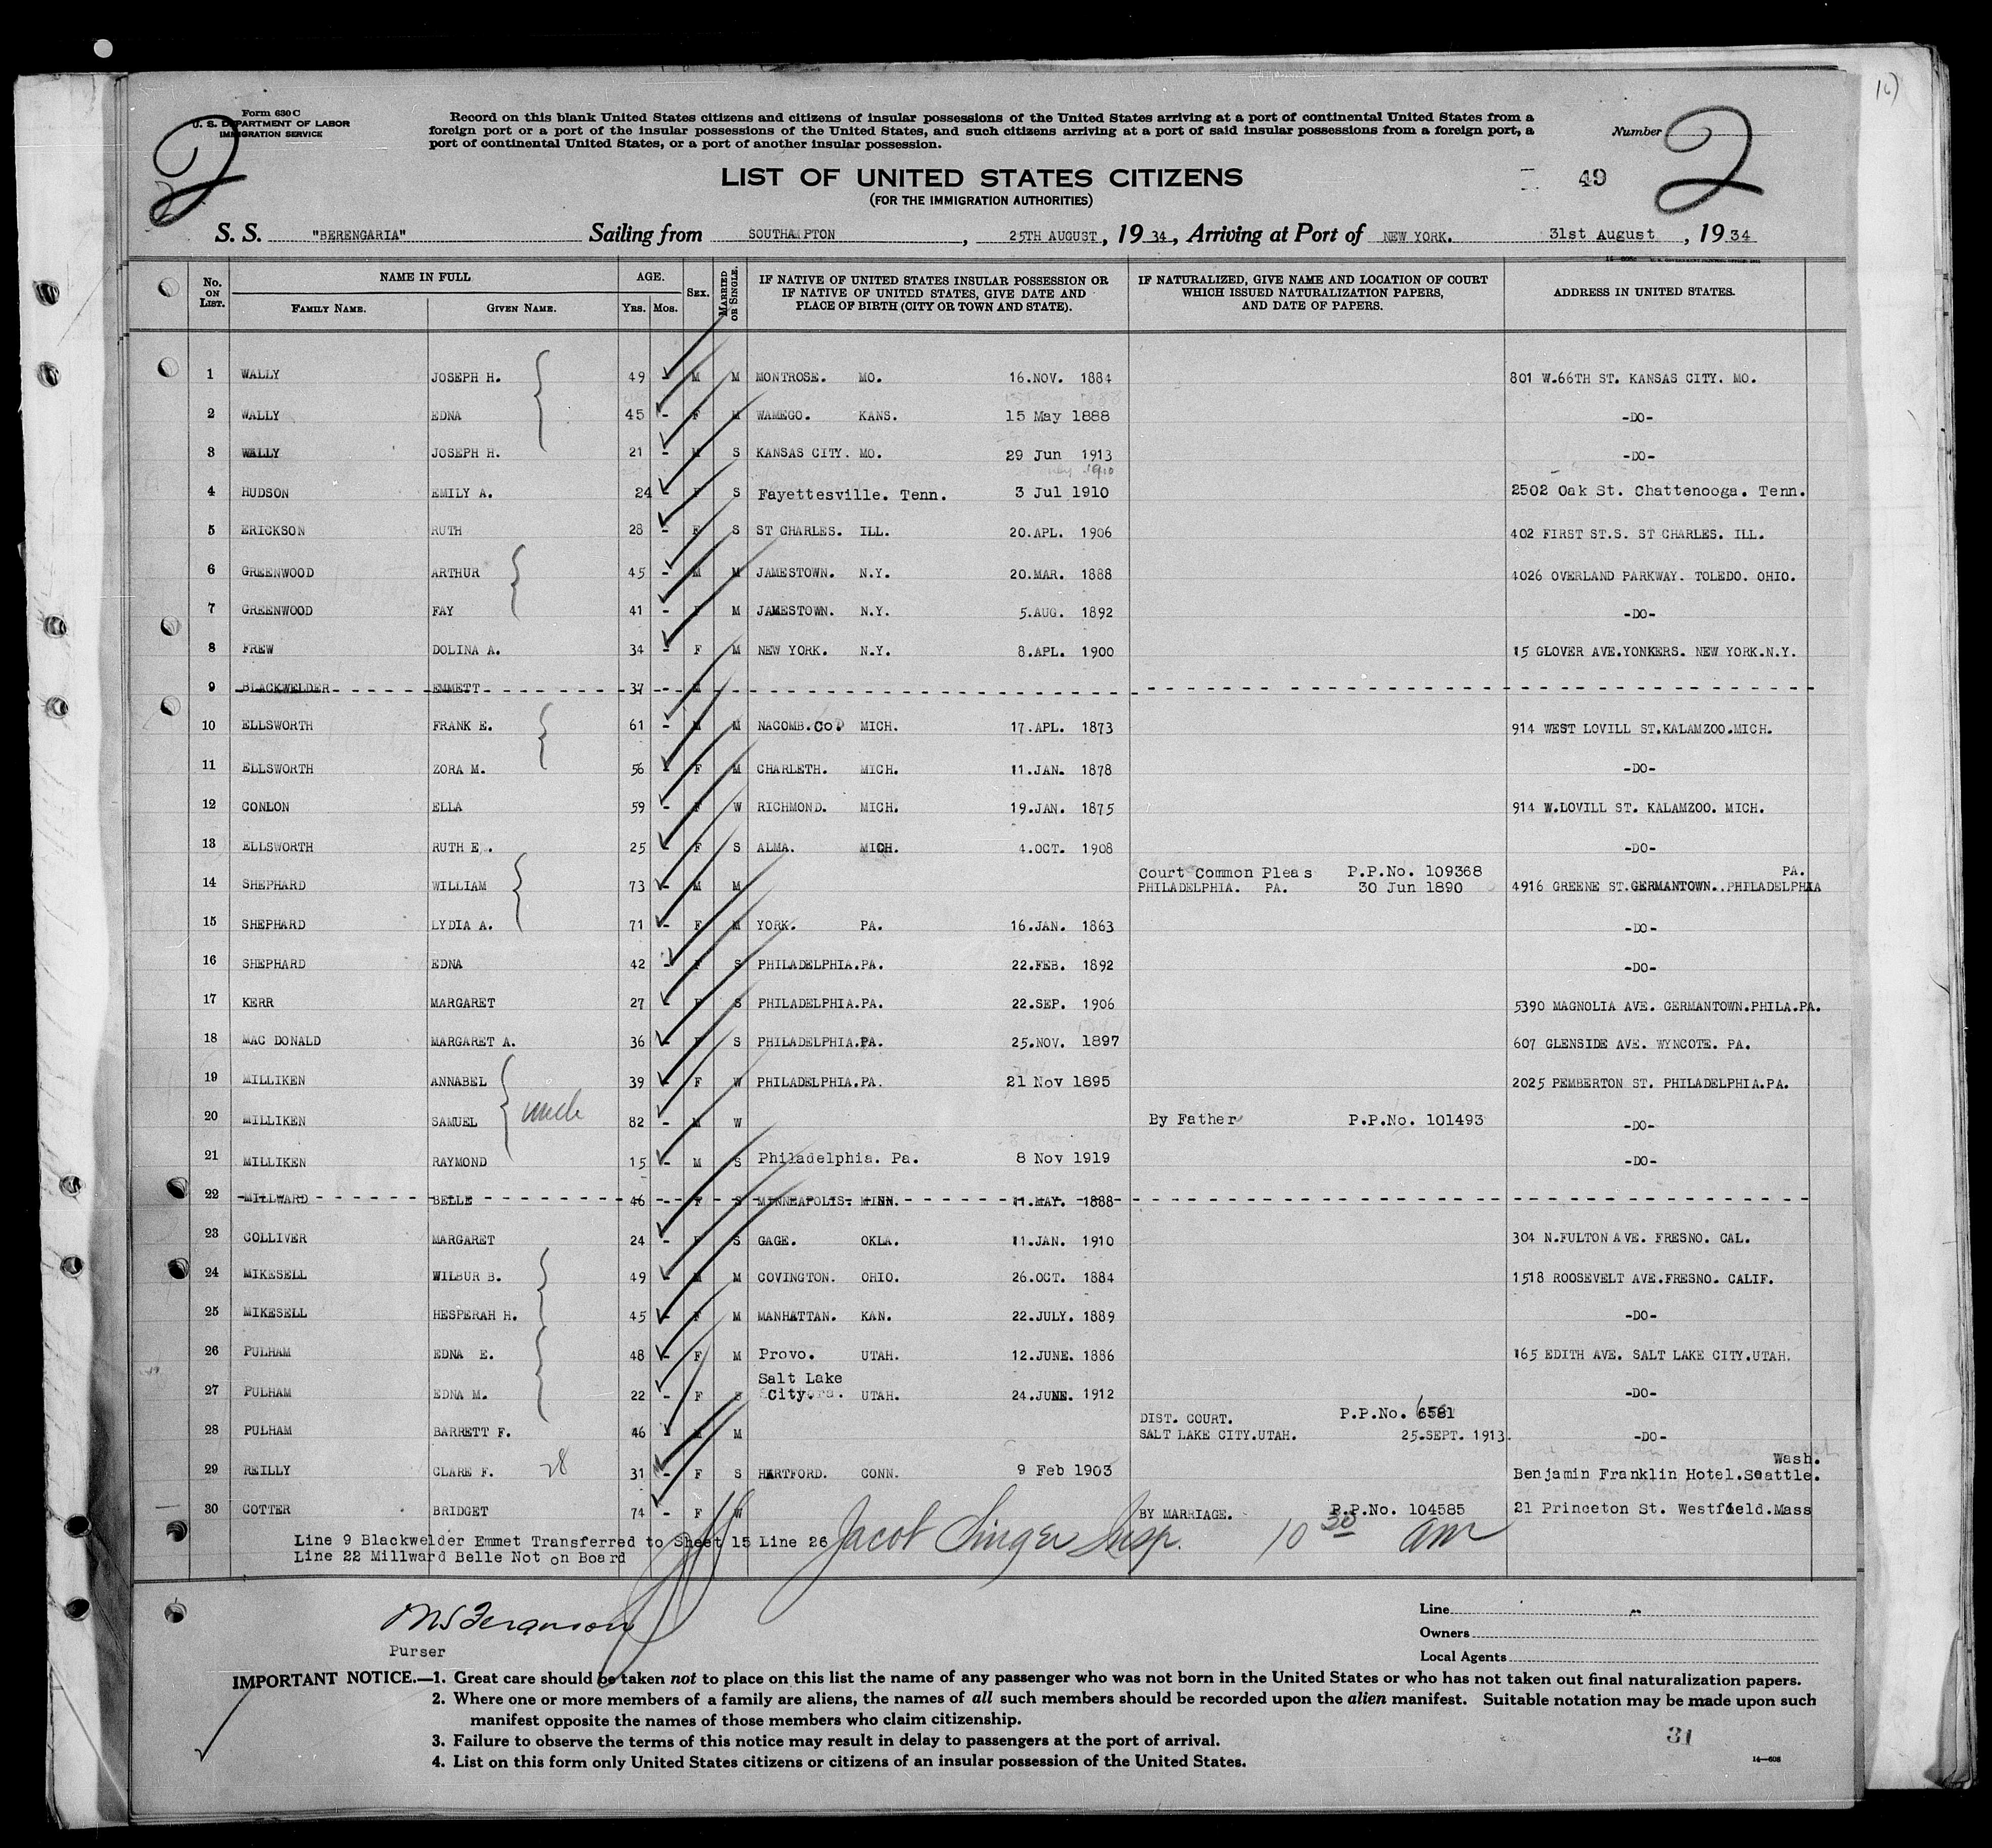 16)
Form 630 C
U. S. DEPARTMENT OF LABOR
IMMIGRATION SERVICE
2
Record on this blank United States citizens and citizens of insular possessions of the United States arriving at a port of continental United States from a
foreign port or a port of the insular possessions of the United States, and such citizens arriving at a port of said insular possessions from a foreign port, a
port of continental United States, or a port of another insular possession.
Number 2
LIST OF UNITED STATES CITIZENS
(FOR THE IMMIGRATION AUTHORITIES)
49
S. S. "BERENGARIA" Sailing from SOUTHAMPTON, 25TH AUGUST, 1934, Arriving at Port of NEW YORK. 31st August, 1934
No. ON LIST. NAME IN FULL FAMILY NAME. GIVEN NAME. AGE. YRS. MOS. SEX. MARRIED OR SINGLE. IF NATIVE OF UNITED STATES INSULAR POSSESSION OR IF NATIVE OF UNITED STATES, GIVE DATE AND PLACE OF BIRTH (CITY OR TOWN AND STATE). IF NATURALIZED, GIVE NAME AND LOCATION OF COURT WHICH ISSUED NATURALIZATION PAPERS, AND DATE OF PAPERS. ADDRESS IN UNITED STATES.
1 WALLY JOSEPH H. 49 - M M MONTROSE. MO. 16.NOV. 1884 801 W.66TH ST. KANSAS CITY. MO.
2 WALLY EDNA 45 - F M WAMEGO. KANS. 15 May 1888 -DO-
3 WALLY JOSEPH H. 21 - M S KANSAS CITY. MO. 29 Jun 1913 -DO-
4 HUDSON EMILY A. 24 - F S Fayettesville. Tenn. 3 Jul 1910 2502 Oak St. Chattenooga. Tenn.
5 ERICKSON RUTH 28 - F S ST CHARLES. ILL. 20.APL. 1906 402 FIRST ST.S. ST CHARLES. ILL.
6 GREENWOOD ARTHUR 45 - M M JAMESTOWN. N.Y. 20.MAR. 1888 4026 OVERLAND PARKWAY. TOLEDO. OHIO.
7 GREENWOOD FAY 41 - F M JAMESTOWN. N.Y. 5.AUG. 1892 -DO-
8 FREW DOLINA A. 34 - F M NEW YORK. N.Y. 8.APL. 1900 15 GLOVER AVE.YONKERS. NEW YORK.N.Y.
9 BLACKWELDER EMMETT 37 - M
10 ELLSWORTH FRANK E. 61 - M M NACOMB.Co. MICH. 17.APL. 1873 914 WEST LOVILL ST.KALAMZOO.MICH.
11 ELLSWORTH ZORA M. 56 - F M CHARLETH. MICH. 11.JAN. 1878 -DO-
12 CONLON ELLA 59 - F W RICHMOND. MICH. 19.JAN. 1875 914 W.LOVILL ST. KALAMZOO. MICH.
13 ELLSWORTH RUTH E. 25 - F S ALMA. MICH. 4.OCT. 1908 -DO-
Court Common Pleas P.P.No. 109368 PA.
14 SHEPHARD WILLIAM 73 - M M PHILADELPHIA. PA. 30 Jun 1890 4916 GREENE ST.GERMANTOWN..PHILADELPHIA
15 SHEPHARD LYDIA A. 71 - F M YORK. PA. 16.JAN. 1863 -DO-
16 SHEPHARD EDNA 42 - F S PHILADELPHIA.PA. 22.FEB. 1892 -DO-
17 KERR MARGARET 27 - F S PHILADELPHIA.PA. 22.SEP. 1906 5390 MAGNOLIA AVE. GERMANTOWN.PHILA.PA.
18 MAC DONALD MARGARET A. 36 - F S PHILADELPHIA.PA. 25.NOV. 1897 607 GLENSIDE AVE. WYNCOTE. PA.
19 MILLIKEN ANNABEL 39 - F W PHILADELPHIA.PA. 21 Nov 1895 2025 PEMBERTON ST. PHILADELPHIA.PA.
20 MILLIKEN SAMUEL uncle 82 - M W By Father P.P.No. 101493 -DO-
21 MILLIKEN RAYMOND 15 - M S Philadelphia. Pa. 8 Nov 1919 -DO-
22 MILLWARD BELLE 46 - F S MINNEAPOLIS. MINN. 11.MAY. 1888
23 COLLIVER MARGARET 24 - F S GAGE. OKLA. 11.JAN. 1910 304 N.FULTON AVE. FRESNO. CAL.
24 MIKESELL WILBUR B. 49 - M M COVINGTON. OHIO. 26.OCT. 1884 1518 ROOSEVELT AVE.FRESNO. CALIF.
25 MIKESELL HESPERAH H. 45 - F M MANHATTAN. KAN. 22.JULY. 1889 -DO-
26 PULHAM EDNA E. 48 - F M Provo. UTAH. 12.JUNE. 1886 165 EDITH AVE. SALT LAKE CITY.UTAH.
Salt Lake
27 PULHAM EDNA M. 22 - F S City. UTAH. 24.JUNE. 1912 -DO-
DIST. COURT. P.P.No. 6581
28 PULHAM BARRETT F. 46 - M M SALT LAKE CITY.UTAH. 25.SEPT. 1913. -DO-
Wash.
29 REILLY CLARE F. 28 31 - F S HARTFORD. CONN. 9 Feb 1903 Benjamin Franklin Hotel.Seattle.
30 COTTER BRIDGET 74 - F W BY MARRIAGE. P.P.No. 104585 21 Princeton St. Westfield.Mass
Line 9 Blackwelder Emmet Transferred to Sheet 15 Line 26
Line 22 Millward Belle Not on Board
Jacob Singer Insp. 10 30 am
Purser
Line
Owners
Local Agents
IMPORTANT NOTICE.—1. Great care should be taken not to place on this list the name of any passenger who was not born in the United States or who has not taken out final naturalization papers.
2. Where one or more members of a family are aliens, the names of all such members should be recorded upon the alien manifest. Suitable notation may be made upon such
manifest opposite the names of those members who claim citizenship.
3. Failure to observe the terms of this notice may result in delay to passengers at the port of arrival.
4. List on this form only United States citizens or citizens of an insular possession of the United States.
31
14—608